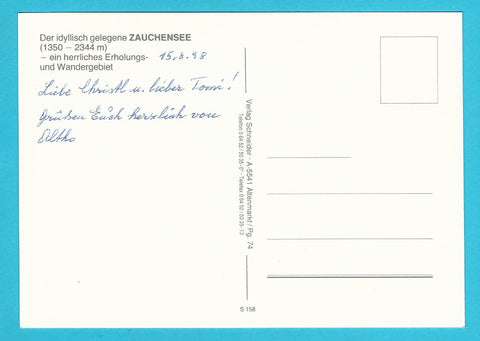 Der idyllisch gelegene ZAUCHENSEE
(1350 – 2344 m)
– ein herrliches Erholungs-
und Wandergebiet
15.8.98
Liebe Christl u. lieber Tomi!
Grüßen Euch herzlich von
Verlag Schneider · A-5541 Altenmarkt / Pg. 74
S 158